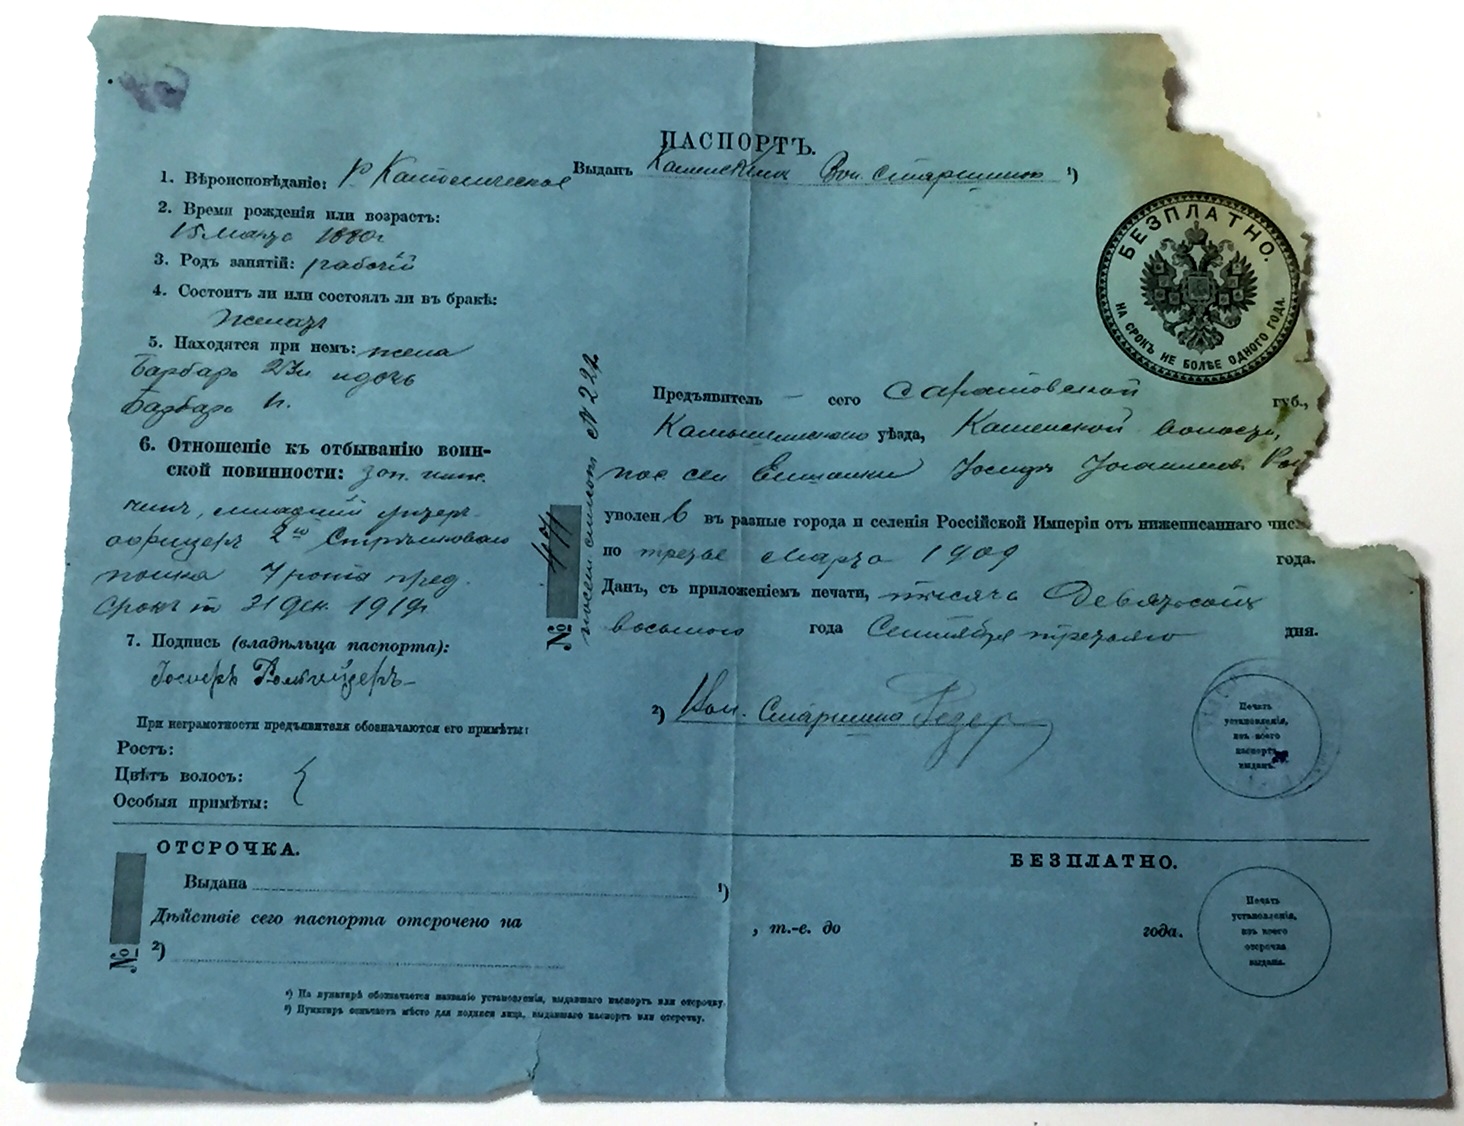 ПАСПОРТЪ.
Выданъ Каменским Вол. Старшиною ¹)
1. Вѣроисповѣданіе: Р. Католическое
2. Время рожденія или возрастъ:
15 Марта 1880 г
3. Родъ занятій: рабочій
4. Состоитъ ли или состоялъ ли въ бракѣ:
Женатъ
5. Находятся при немъ: жена
Барбара 23 л и дочь
Барбара
6. Отношеніе къ отбыванію воин-
ской повинности: зап. ниж.
чинъ, младшій унтеръ
офицеръ 2го Стрѣлковаго
полка 7 роты пред.
срокъ по 31 Дек.
7. Подпись (владѣльца паспорта):
Іосифъ
При неграмотности предъявителя обозначаются его примѣты:
Ростъ:
Цвѣтъ волосъ:
Особыя примѣты:
БЕЗПЛАТНО.
НА СРОКЪ НЕ БОЛѢЕ ОДНОГО ГОДА.
№ 471
посем. списк. № 222
Предъявитель — сего Саратовской губ.,
Камышинскаго уѣзда, Каменской волости,
пос. сел Іосифъ
уволенъ въ разные города и селенія Россійской Имперіи отъ нижеписаннаго числ
по третье Марта 1909 года.
Данъ, съ приложеніемъ печати, тысяча Девятсотъ
восьмого года Сентября третьяго дня.
²) Вол. Старшина
Печать
установленія,
изъ коего
паспортъ
выданъ.
ОТСРОЧКА.
БЕЗПЛАТНО.
Выдана ¹)
Дѣйствіе сего паспорта отсрочено на , т.-е. до года.
№ ²)
Печать
установленія,
изъ коего
отсрочка
выдана.
¹) На пунктирѣ обозначается названіе установленія, выдавшаго паспортъ или отсрочку.
²) Пунктиръ означаетъ мѣсто для подписи лица, выдавшаго паспортъ или отсрочку.